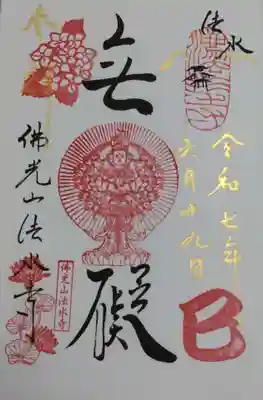 法水
令和七年
六月十九日
巳
無
礙
佛光山法水寺
佛光山 法水寺